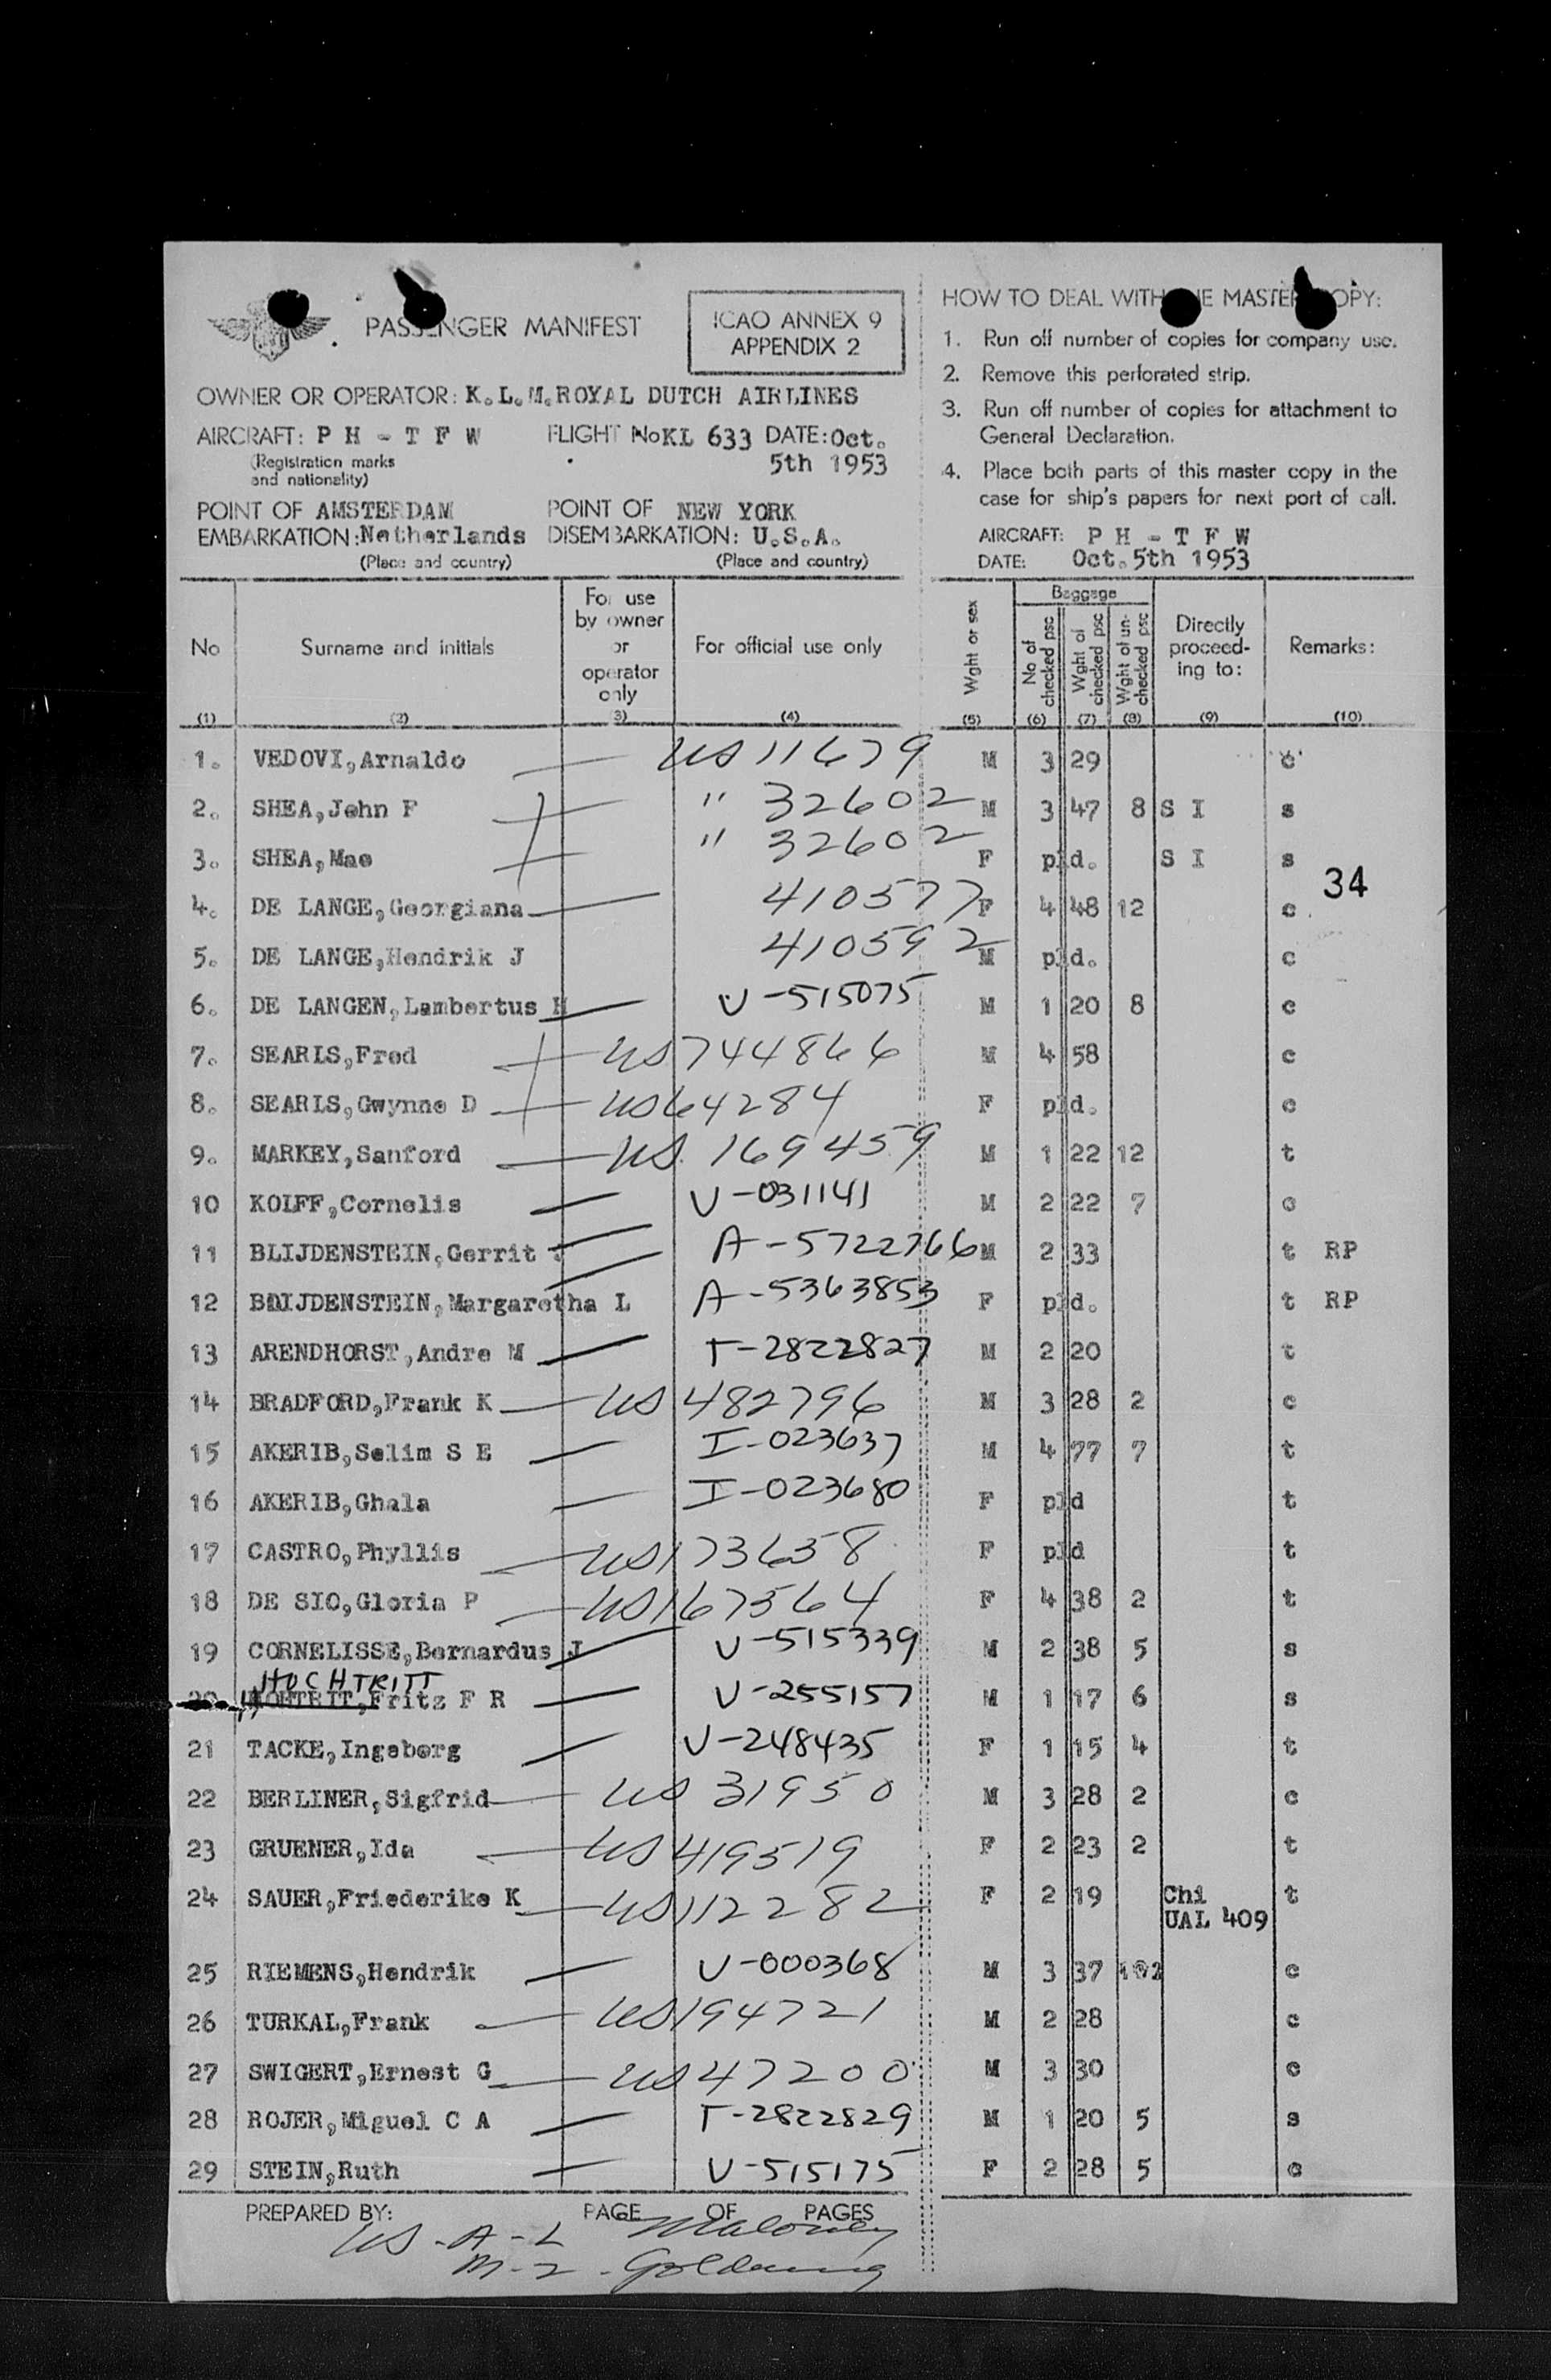 PASSENGER MANIFEST
ICAO ANNEX 9
APPENDIX 2
OWNER OR OPERATOR: K.L.M. ROYAL DUTCH AIRLINES
AIRCRAFT: P H - T F W FLIGHT No KL 633 DATE: Oct.
5th 1953
(Registration marks
and nationality)
POINT OF AMSTERDAM POINT OF NEW YORK
EMBARKATION: Netherlands DISEMBARKATION: U.S.A.
(Place and country) (Place and country)
HOW TO DEAL WITH THE MASTER COPY:
1. Run off number of copies for company use.
2. Remove this perforated strip.
3. Run off number of copies for attachment to
General Declaration.
4. Place both parts of this master copy in the
case for ship's papers for next port of call.
AIRCRAFT: P H - T F W
DATE: Oct. 5th 1953
No Surname and initials For use by owner or operator only For official use only Wght or sex Baggage No of checked psc Wght of checked psc Wght of un-checked psc Directly proceed-ing to: Remarks:
(1) (2) (3) (4) (5) (6) (7) (8) (9) (10)
1. VEDOVI, Arnaldo US 11679 M 3 29 c
2. SHEA, John F " 32602 M 3 47 8 S I s
3. SHEA, Mae " 32602 F pld. S I s
34
4. DE LANGE, Georgiana 410577 F 4 48 12 c
5. DE LANGE, Hendrik J 410592 M pld. c
6. DE LANGEN, Lambertus H V-515075 M 1 20 8 c
7. SEARLS, Fred US 744866 M 4 58 c
8. SEARLS, Gwynne D US 64284 F pld. c
9. MARKEY, Sanford US 169459 M 1 22 12 t
10 KOLFF, Cornelis V-031141 M 2 22 7 c
11 BLIJDENSTEIN, Gerrit J A-5722766 M 2 33 t RP
12 BLIJDENSTEIN, Margaretha L A-5363853 F pld. t RP
13 ARENDHORST, Andre M T-2822827 M 2 20 t
14 BRADFORD, Frank K US 482796 M 3 28 2 c
15 AKERIB, Selim S E I-023637 M 4 77 7 t
16 AKERIB, Ghala I-023680 F pld t
17 CASTRO, Phyllis US 173658 F pld t
18 DE SIO, Gloria P US 167564 F 4 38 2 t
19 CORNELISSE, Bernardus J V-515339 M 2 38 5 s
HOCHTRITT
20 Fritz F R V-255157 M 1 17 6 s
21 TACKE, Ingeborg V-248435 F 1 15 4 t
22 BERLINER, Sigfrid US 31950 M 3 28 2 c
23 GRUENER, Ida US 419519 F 2 23 2 t
24 SAUER, Friederike K US 112282 F 2 19 Chi t
UAL 409
25 RIEMENS, Hendrik V-000368 M 3 37 c
26 TURKAL, Frank US 194721 M 2 28 c
27 SWIGERT, Ernest G US 47200 M 3 30 c
28 ROJER, Miguel C A T-2822829 M 1 20 5 s
29 STEIN, Ruth V-515175 F 2 28 5 c
PREPARED BY: PAGE OF PAGES
US-A-L Maloney
M-2-